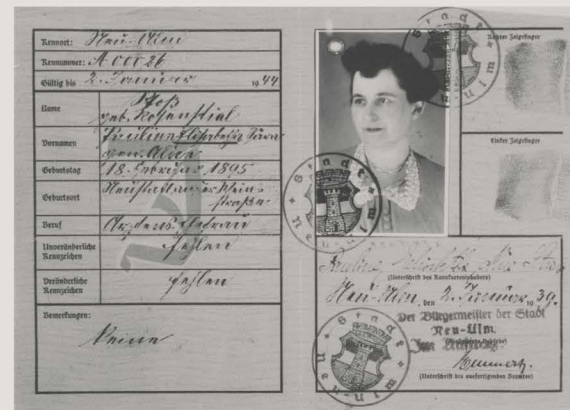 Kennort: Neu-Ulm
Kennummer: A 00026
Gültig bis 2. Januar 1944
Name
geb. Rosenthal
Vornamen Pauline Elisabetha Sara
gen. Alice
Geburtstag 18. Februar 1895
Geburtsort Neustadt an der Wein-
straße
Beruf Arztens Ehefrau
Unveränderliche
Kennzeichen fehlen
Veränderliche
Kennzeichen fehlen
Bemerkungen:
keine
Stadt
Neu-Ulm
Rechter Zeigefinger
Linker Zeigefinger
Stadt
Neu-Ulm
Pauline Elisabetha
(Unterschrift des Kennkarteninhabers)
Neu-Ulm, den 2. Januar 1939.
Der Bürgermeister der Stadt
Neu-Ulm.
Im Auftrag:
(Unterschrift des ausfertigenden Beamten)
Stadt
Neu-Ulm